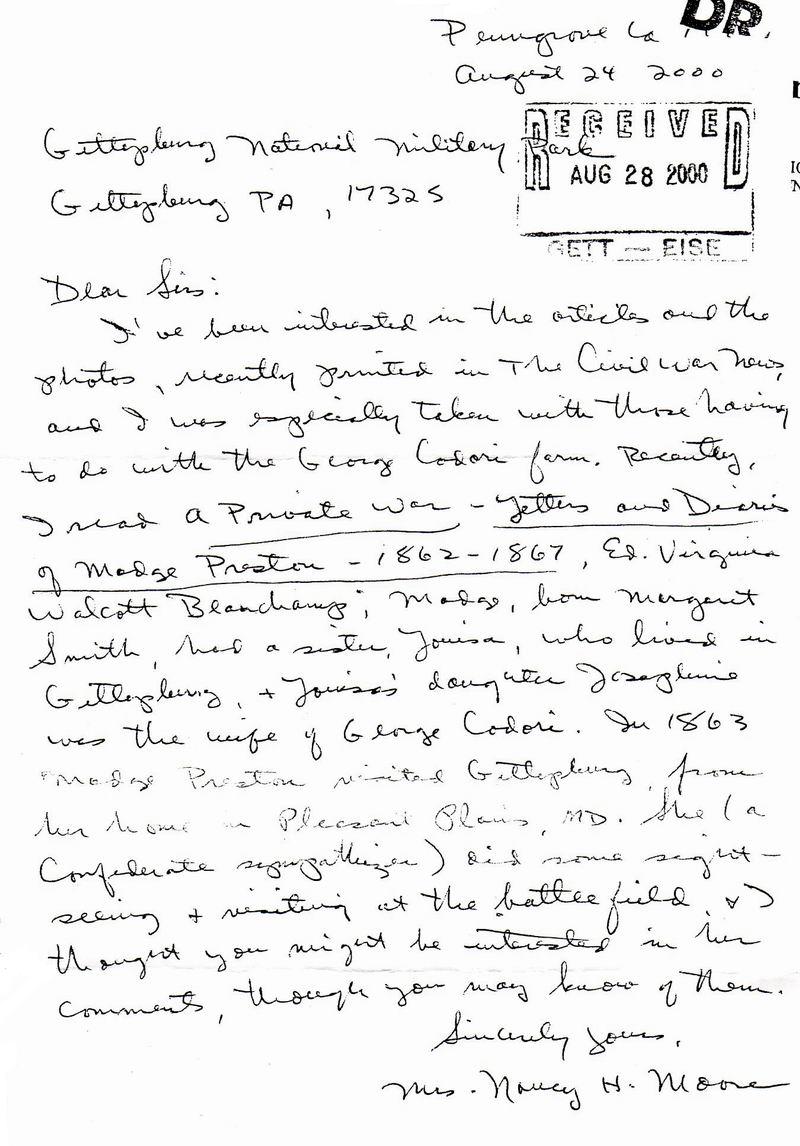 Penngrove Ca
DR
August 24 2000
RECEIVED
AUG 28 2000
GETT — EISE
Gettysburg National Military Park
Gettysburg PA, 17325
Dear Sirs:
I've been interested in the articles and the
photos, recently printed in The Civil War News,
and I was especially taken with those having
to do with the George Codori farm. Recently,
I read A Private War - Letters and Diaries
of Madge Preston - 1862-1867, Ed. Virginia
Walcott Beauchamp; Madge, born Margaret
Smith, had a sister, Louisa, who lived in
Gettysburg, + Louisa's daughter Josephine
was the wife of George Codori. In 1863
Madge Preston visited Gettysburg from
her home in Pleasant Plains, MD. She (a
Confederate sympathizer) did some sight-
seeing + visiting at the battlefield, & I
thought you might be interested in her
comments, though you may know of them.
Sincerely yours,
Mrs. Nancy H. Moore